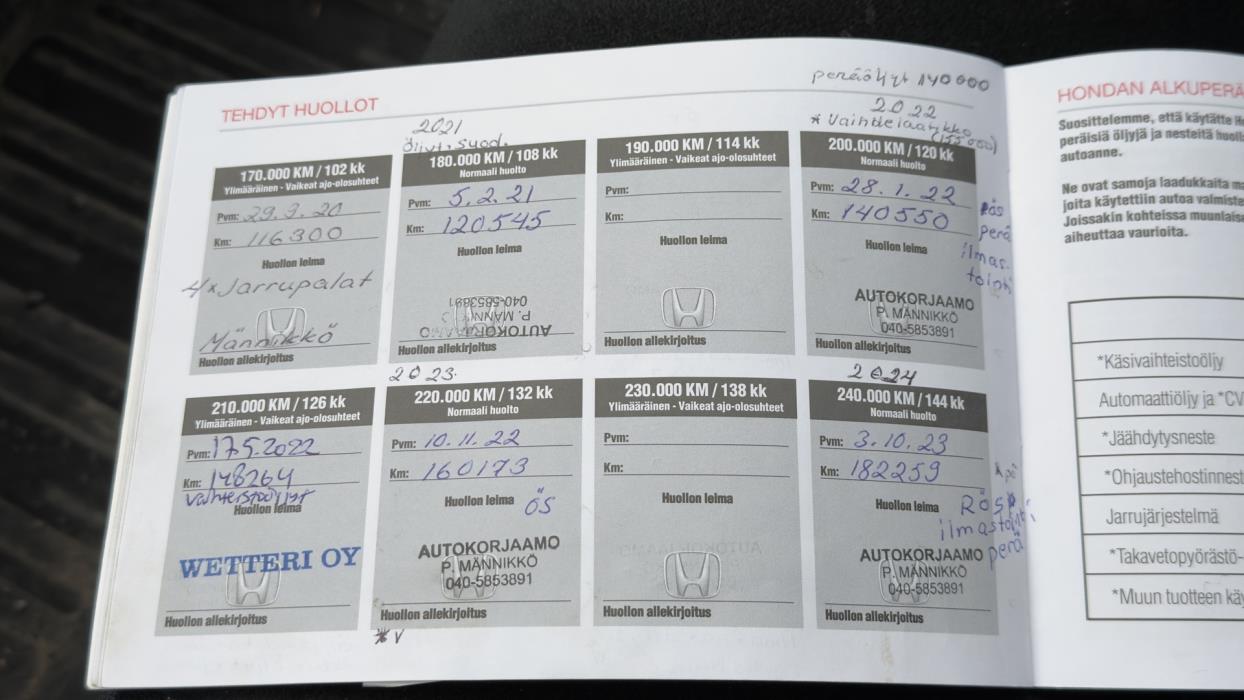 peräöljyt 140 000
TEHDYT HUOLLOT
2021
Öljyt, suod.
2022
* Vaihdelaatikko
(155 000)
170.000 KM / 102 kk
Ylimääräinen - Vaikeat ajo-olosuhteet
Pvm: 29.9.20
Km: 116300
Huollon leima
4x Jarrupalat
Männikkö
Huollon allekirjoitus
180.000 KM / 108 kk
Normaali huolto
Pvm: 5.2.21
Km: 120545
Huollon leima
AUTOKORJAAMO
P. MÄNNIKKÖ
040-5853891
Huollon allekirjoitus
190.000 KM / 114 kk
Ylimääräinen - Vaikeat ajo-olosuhteet
Pvm:
Km:
Huollon leima
Huollon allekirjoitus
200.000 KM / 120 kk
Normaali huolto
Pvm: 28.1.22
Km: 140550
Huollon leima
perä
ilmas.
tointi
AUTOKORJAAMO
P. MÄNNIKKÖ
040-5853891
Huollon allekirjoitus
210.000 KM / 126 kk
Ylimääräinen - Vaikeat ajo-olosuhteet
Pvm: 17.5.2022
Km: 148264
Huollon leima
WETTERI OY
Huollon allekirjoitus
2023
220.000 KM / 132 kk
Normaali huolto
Pvm: 10.11.22
Km: 160173
Huollon leima
ÖS
AUTOKORJAAMO
P. MÄNNIKKÖ
040-5853891
Huollon allekirjoitus
* V
230.000 KM / 138 kk
Ylimääräinen - Vaikeat ajo-olosuhteet
Pvm:
Km:
Huollon leima
Huollon allekirjoitus
2024
240.000 KM / 144 kk
Normaali huolto
Pvm: 3.10.23
Km: 182259
Huollon leima
RÖS
ilmastointi
perä
AUTOKORJAAMO
P. MÄNNIKKÖ
040-5853891
Huollon allekirjoitus
HONDAN ALKUPERÄ
Suosittelemme, että käytätte
peräisiä öljyjä ja nesteitä
autoanne.
Ne ovat samoja laadukkaita
joita käytettiin autoa
Joissakin kohteissa
aiheuttaa vaurioita.
*Käsivaihteistoöljy
Automaattiöljy ja *CV
*Jäähdytysneste
*Ohjaustehostinnest
Jarrujärjestelmä
*Takavetopyörästö-
*Muun tuotteen